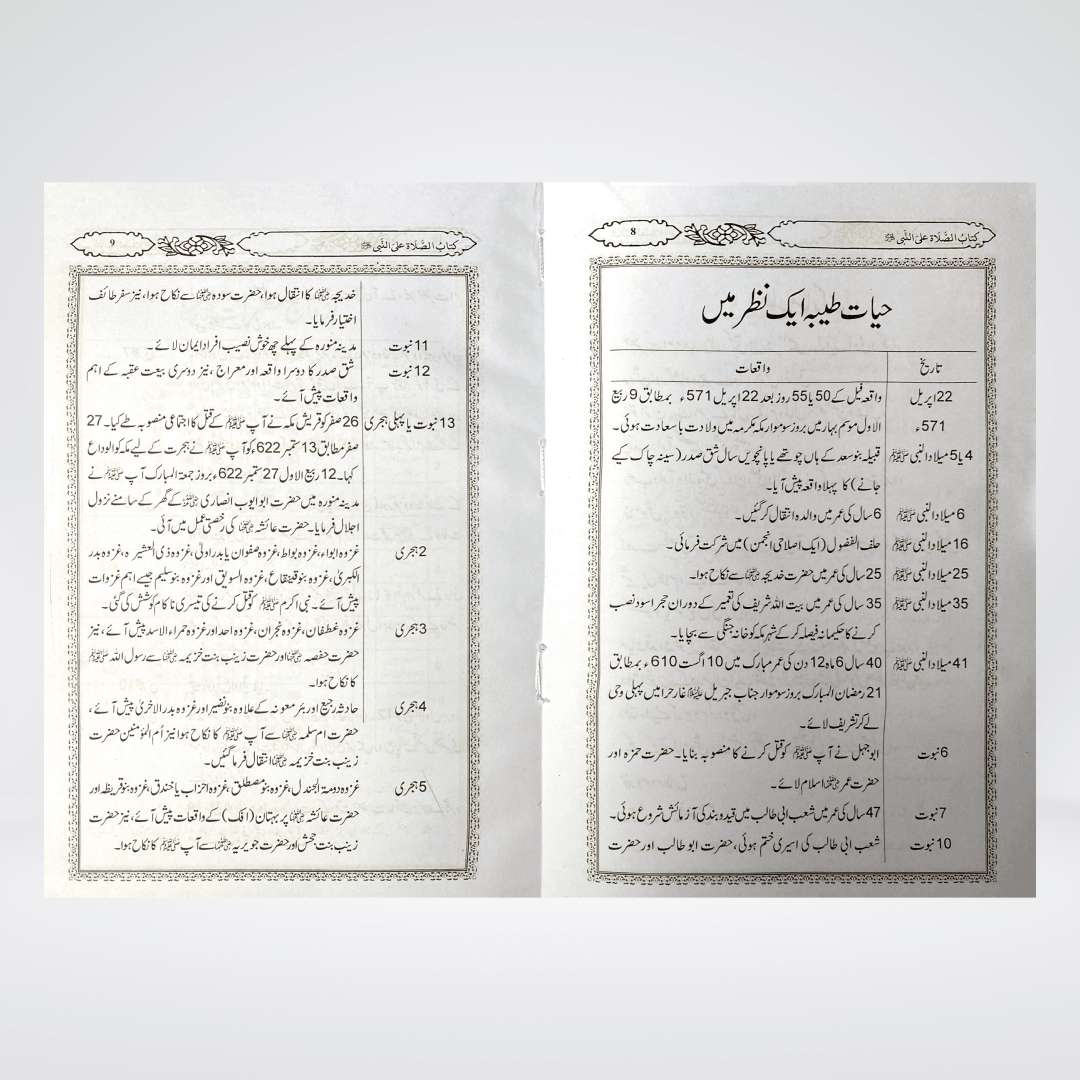 کتابُ الصَّلاۃ علَی النَّبِی ﷺ 8
حیات طیبہ ایک نظر میں
تاریخ واقعات
22اپریل واقعہ فیل کے 50 یا 55 روز بعد 22 اپریل 571ء بمطابق 9 ربیع
571ء الاول موسم بہار میں بروز سوموار مکہ مکرمہ میں ولادت با سعادت ہوئی۔
4یا5میلاد النبی ﷺ قبیلہ بنو سعد کے ہاں چوتھے یا پانچویں سال شق صدر (سینہ چاک کیے
جانے) کا پہلا واقعہ پیش آیا۔
6میلاد النبی ﷺ 6سال کی عمر میں والدہ انتقال کر گئیں۔
16میلاد النبی ﷺ حلف الفضول (ایک اصلاحی انجمن) میں شرکت فرمائی۔
25میلاد النبی ﷺ 25سال کی عمر میں حضرت خدیجہ رضی اللہ عنہا سے نکاح ہوا۔
35میلاد النبی ﷺ 35 سال کی عمر میں بیت اللہ شریف کی تعمیر کے دوران حجر اسود نصب
کرنے کا حکیمانہ فیصلہ کر کے شہر مکہ کو خانہ جنگی سے بچایا۔
41میلاد النبی ﷺ 40 سال 6 ماہ 12 دن کی عمر مبارک میں 10 اگست 610ء بمطابق
21 رمضان المبارک بروز سوموار جناب جبریل علیہ السلام غار حرا میں پہلی وحی
لے کر تشریف لائے۔
6نبوت ابو جہل نے آپ ﷺ کو قتل کرنے کا منصوبہ بنایا۔ حضرت حمزہ اور
حضرت عمر رضی اللہ عنہما اسلام لائے۔
7نبوت 47سال کی عمر میں شعب ابی طالب میں قید و بند کی آزمائش شروع ہوئی۔
10نبوت شعب ابی طالب کی اسیری ختم ہوئی، حضرت ابو طالب اور حضرت
کتابُ الصَّلاۃ علَی النَّبِی ﷺ 9
خدیجہ رضی اللہ عنہا کا انتقال ہوا، حضرت سودہ رضی اللہ عنہا سے نکاح ہوا، نیز سفر طائف
اختیار فرمایا۔
11نبوت مدینہ منورہ کے پہلے چھ خوش نصیب افراد ایمان لائے۔
12نبوت شق صدر کا دوسرا واقعہ اور معراج، نیز دوسری بیعت عقبہ کے اہم
واقعات پیش آئے۔
13نبوت یا پہلی ہجری 26صفر کو قریش مکہ نے آپ ﷺ کے قتل کا اجتماعی منصوبہ طے کیا۔ 27
صفر مطابق 13 ستمبر 622ء کو آپ ﷺ نے ہجرت کے لیے مکہ کو الوداع
کہا۔ 12 ربیع الاول 27 ستمبر 622ء بروز جمعۃ المبارک آپ ﷺ نے
مدینہ منورہ میں حضرت ابو ایوب انصاری رضی اللہ عنہ کے گھر کے سامنے نزول
اجلال فرمایا۔ حضرت عائشہ رضی اللہ عنہا کی رخصتی عمل میں آئی۔
2ہجری غزوہ ابواء، غزوہ بواط، غزوہ صفوان یا بدر اولیٰ، غزوہ ذی العشیرہ، غزوہ بدر
الکبریٰ، غزوہ بنو قینقاع، غزوہ السویق اور غزوہ بنو سلیم جیسے اہم غزوات
پیش آئے۔ نبی اکرم ﷺ کو قتل کرنے کی تیسری ناکام کوشش کی گئی۔
3ہجری غزوہ غطفان، غزوہ نجران، غزوہ احد اور غزوہ حمراء الاسد پیش آئے، نیز
حضرت حفصہ رضی اللہ عنہا اور حضرت زینب بنت خزیمہ رضی اللہ عنہا سے رسول اللہ ﷺ
کا نکاح ہوا۔
4ہجری حادثہ رجیع اور بئر معونہ کے علاوہ بنو نضیر اور غزوہ بدر الاخریٰ پیش آئے،
حضرت ام سلمہ رضی اللہ عنہا سے آپ ﷺ کا نکاح ہوا نیز اُم المؤمنین حضرت
زینب بنت خزیمہ رضی اللہ عنہا انتقال فرما گئیں۔
5ہجری غزوہ دومۃ الجندل، غزوہ بنو مصطلق، غزوہ احزاب یا خندق، غزوہ بنو قریظہ اور
حضرت عائشہ رضی اللہ عنہا پر بہتان (افک) کے واقعات پیش آئے، نیز حضرت
زینب بنت جحش اور حضرت جویریہ رضی اللہ عنہا سے آپ ﷺ کا نکاح ہوا۔